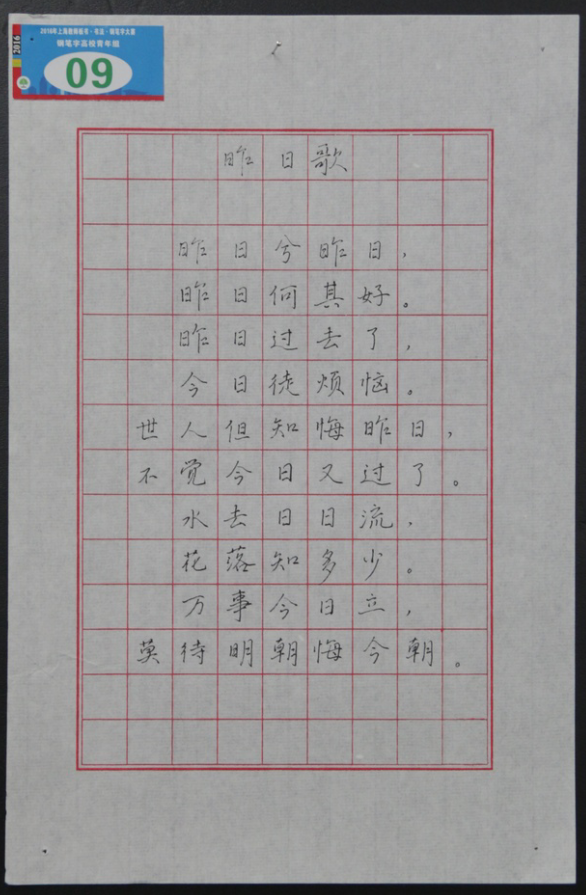 2016
2016年上海教师板书·书法·钢笔字大赛
钢笔字高校青年组
09
昨日歌
昨日兮昨日，
昨日何其好。
昨日过去了，
今日徒烦恼。
世人但知悔昨日，
不觉今日又过了。
水去日日流，
花落知多少。
万事今日立，
莫待明朝悔今朝。